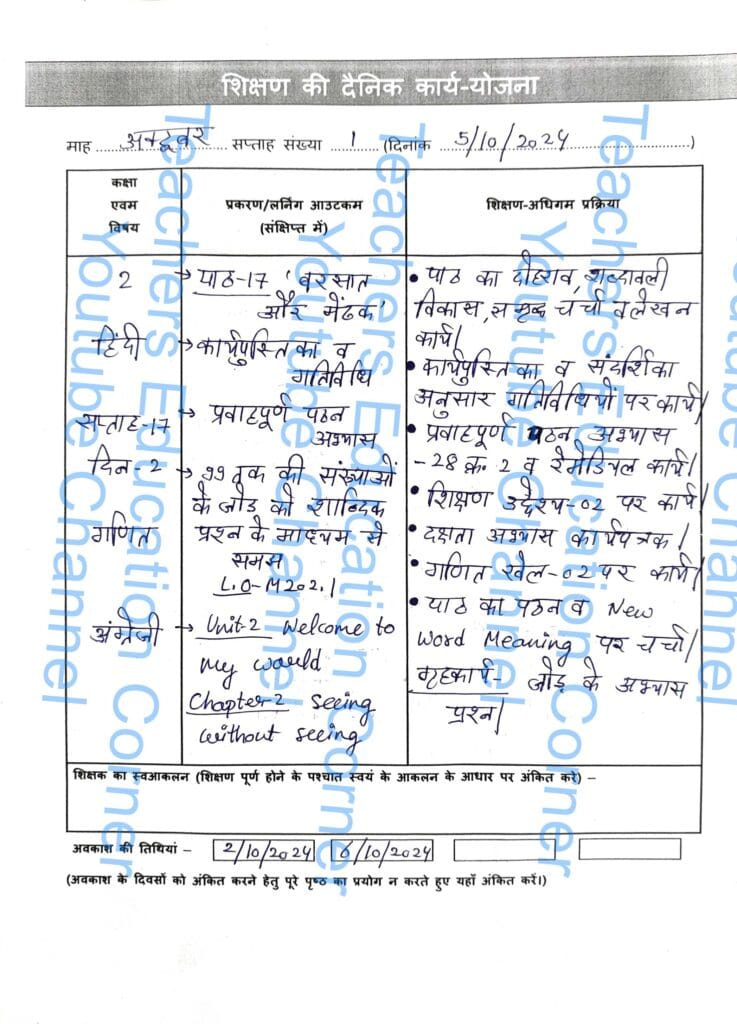 शिक्षण की दैनिक कार्य-योजना
माह अक्टूबर सप्ताह संख्या 1 (दिनांक 5/10/2024)
कक्षा
एवम
विषय
प्रकरण/लर्निंग आउटकम
(संक्षिप्त में)
शिक्षण-अधिगम प्रक्रिया
2
हिंदी
सप्ताह-17
दिन-2
गणित
अंग्रेजी
→ पाठ-17 'बरसात
और मेंढक'
→ कार्यपुस्तिका व
गतिविधि
→ प्रवाहपूर्ण पठन
अभ्यास
→ 99 तक की संख्याओं
के जोड़ को शाब्दिक
प्रश्न के माध्यम से
समझ
L.O-M202.1
→ Unit-2 Welcome to
my world
Chapter-2 Seeing
without seeing
• पाठ का दोहराव, शब्दावली
विकास, समृद्ध चर्चा व लेखन
कार्य|
• कार्यपुस्तिका व संदर्शिका
अनुसार गतिविधियों पर कार्य|
• प्रवाहपूर्ण पठन अभ्यास
-28 क्र. 2 व रेमेडियल कार्य|
• शिक्षण उद्देश्य-02 पर कार्य|
• दक्षता अभ्यास कार्यपत्रक|
• गणित खेल-02 पर कार्य|
• पाठ का पठन व New
Word Meaning पर चर्चा|
गृहकार्य- जोड़ के अभ्यास
प्रश्न|
शिक्षक का स्वआकलन (शिक्षण पूर्ण होने के पश्चात स्वयं के आकलन के आधार पर अंकित करे) –
अवकाश की तिथियां – 2/10/2024 6/10/2024
(अवकाश के दिवसों को अंकित करने हेतु पूरे पृष्ठ का प्रयोग न करते हुए यहाँ अंकित करें।)
Teachers Education Corner
Youtube Channel
Teachers Education Corner
Youtube Channel
Teachers Education Corner
Youtube Channel